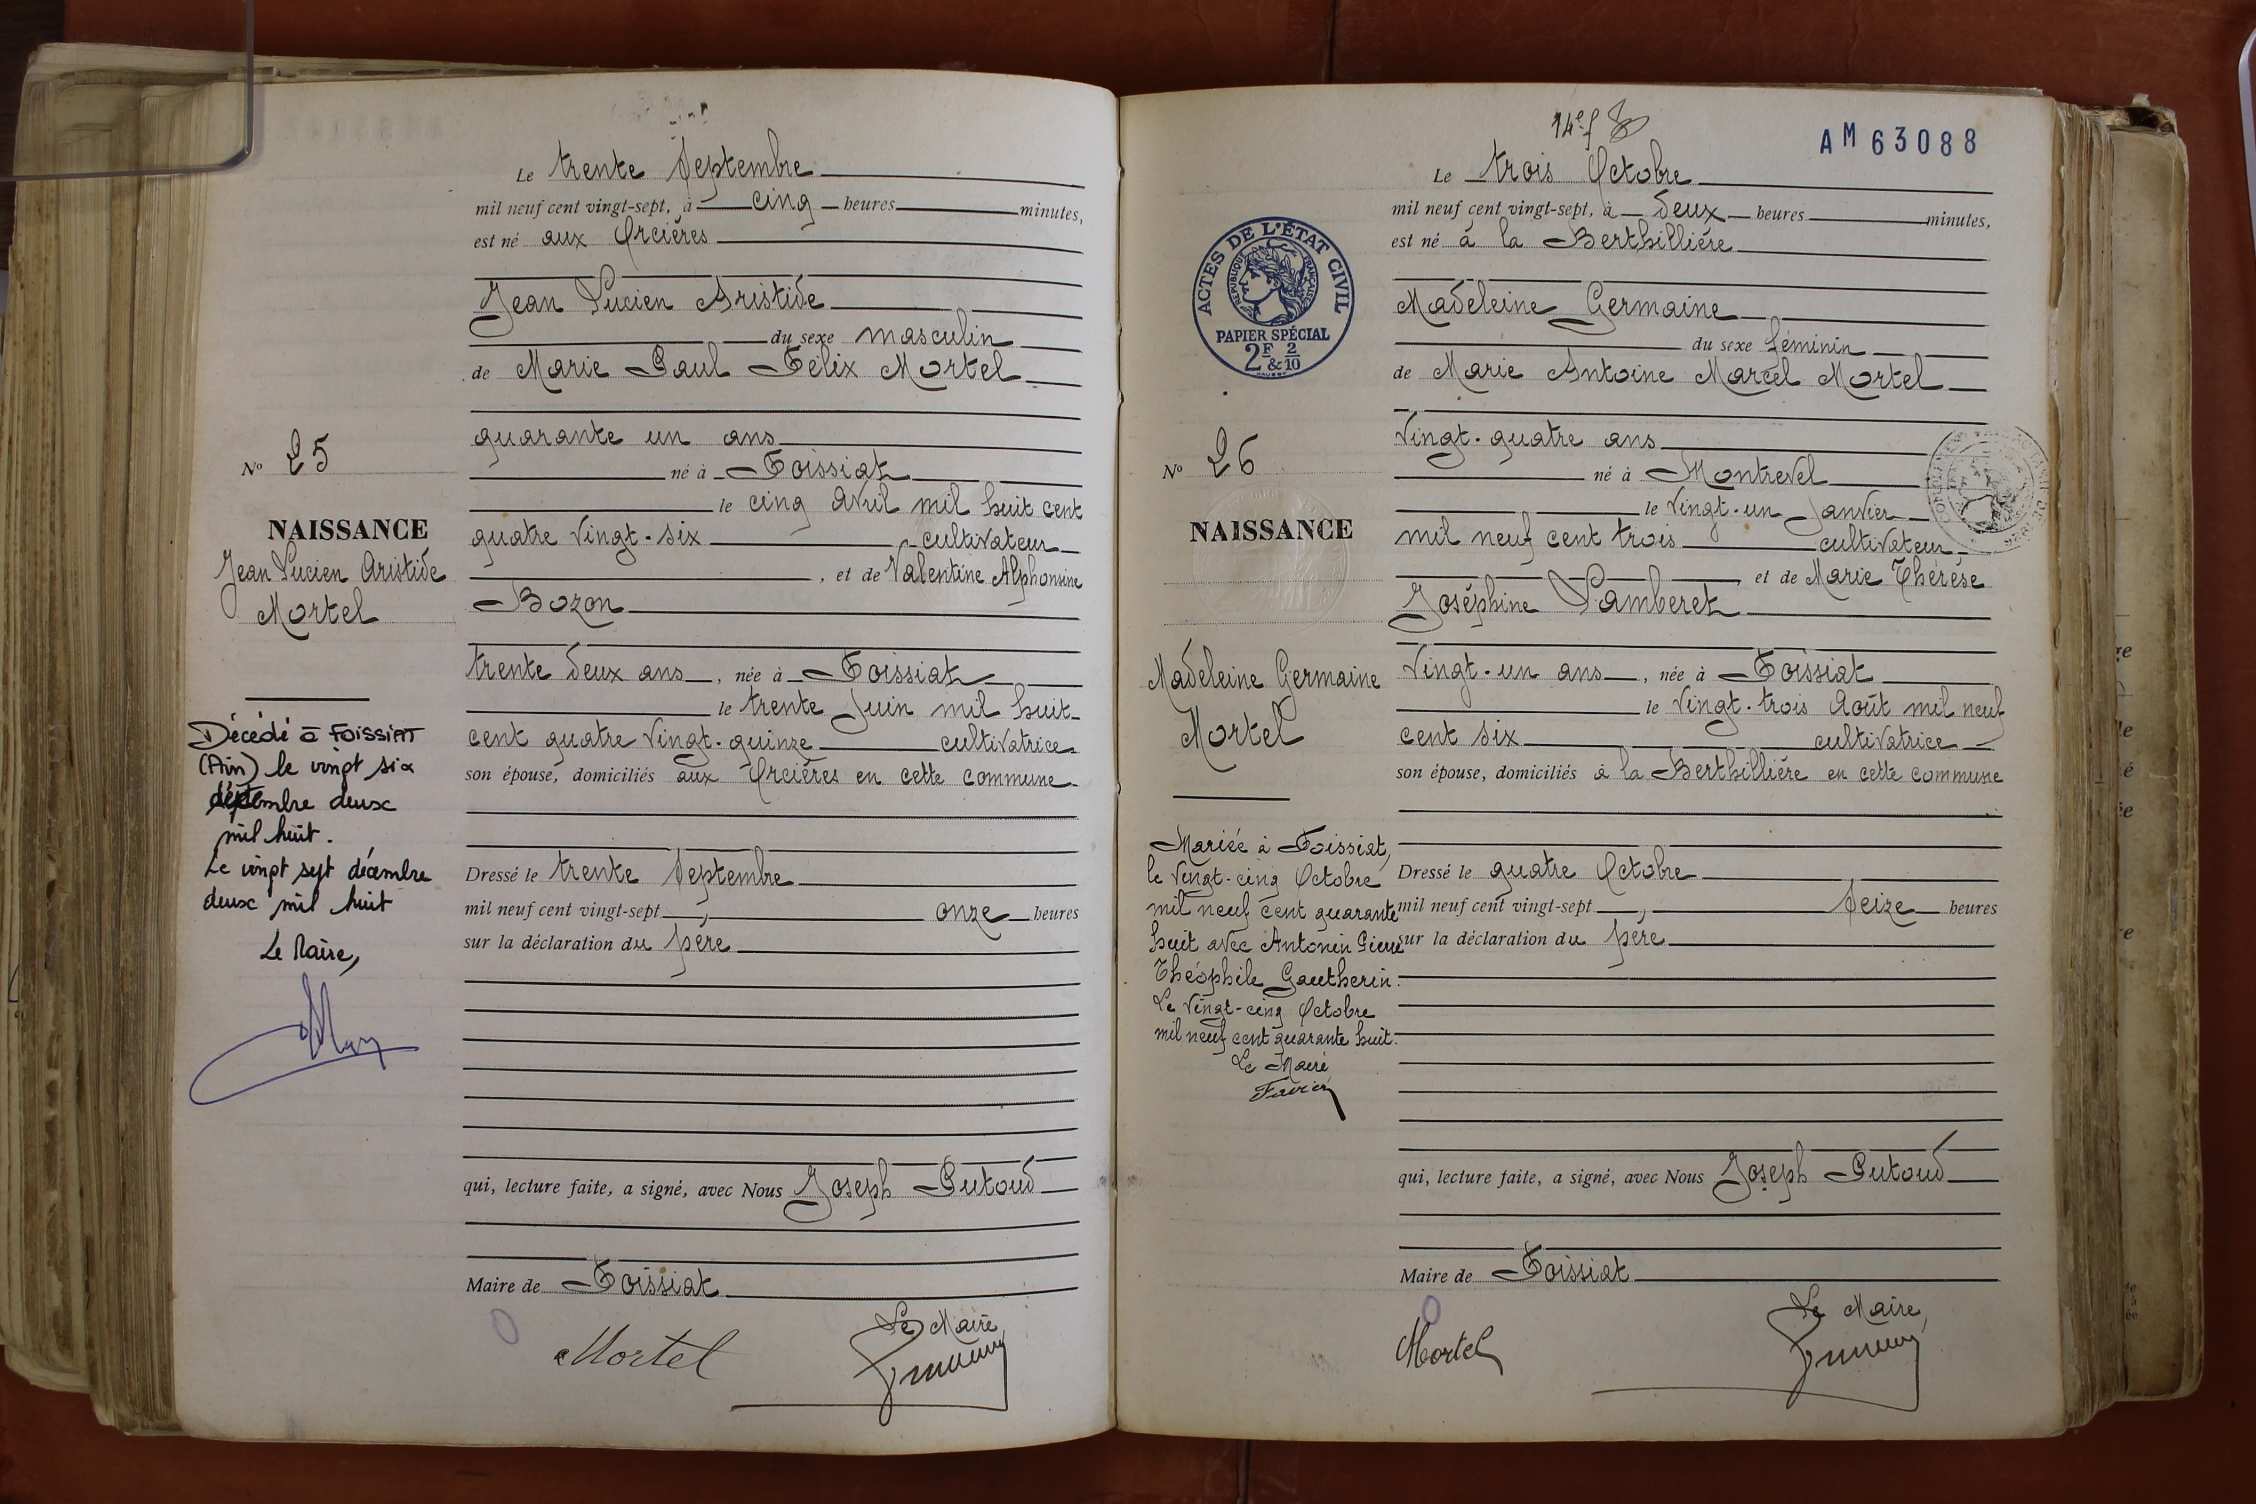 Le trente Septembre
mil neuf cent vingt-sept, à cinq heures minutes,
est né aux Orcières
Jean Lucien Aristide
du sexe masculin
de Marie Paul Félix Mortel
quarante un ans
Nº 25
né à Foissiat
le cinq Avril mil huit cent
NAISSANCE
quatre vingt-six cultivateur
Jean Lucien Aristide
Mortel
, et de Valentine Alphonsine
Bozon
trente deux ans, née à Foissiat
le trente Juin mil huit
cent quatre vingt-quinze cultivatrice
son épouse, domiciliés aux Orcières en cette commune
Décédé à FOISSIAT
(Ain) le vingt six
décembre deux
mil huit.
Le vingt sept décembre
deux mil huit
Le Maire,
Dressé le trente Septembre
mil neuf cent vingt-sept, onze heures
sur la déclaration du père
qui, lecture faite, a signé, avec Nous Joseph Putoud
Maire de Foissiat
Le Maire
Mortel
14e f
AM 63088
Le trois Octobre
mil neuf cent vingt-sept, à deux heures minutes,
est né à la Berthillière
ACTES DE L'ÉTAT CIVIL
RÉPUBLIQUE FRANÇAISE
PAPIER SPÉCIAL
2F & 2/10
Madeleine Germaine
du sexe féminin
de Marie Antoine Marcel Mortel
Vingt-quatre ans
Nº 26
né à Montrevel
le Vingt-un Janvier
NAISSANCE
mil neuf cent trois cultivateur
et de Marie Thérèse
Joséphine Pamberet
Madeleine Germaine
Mortel
Vingt-un ans, née à Foissiat
le Vingt-trois Août mil neuf
cent six cultivatrice
son épouse, domiciliés à la Berthillière en cette commune
Mariée à Foissiat,
le Vingt-cinq Octobre
mil neuf cent quarante
huit avec Antonin Pierre
Théophile Gautherin.
Le Vingt-cinq Octobre
mil neuf cent quarante huit.
Le Maire
Favier
Dressé le quatre Octobre
mil neuf cent vingt-sept, Seize heures
sur la déclaration du père
qui, lecture faite, a signé, avec Nous Joseph Putoud
Maire de Foissiat
Le Maire,
Mortel